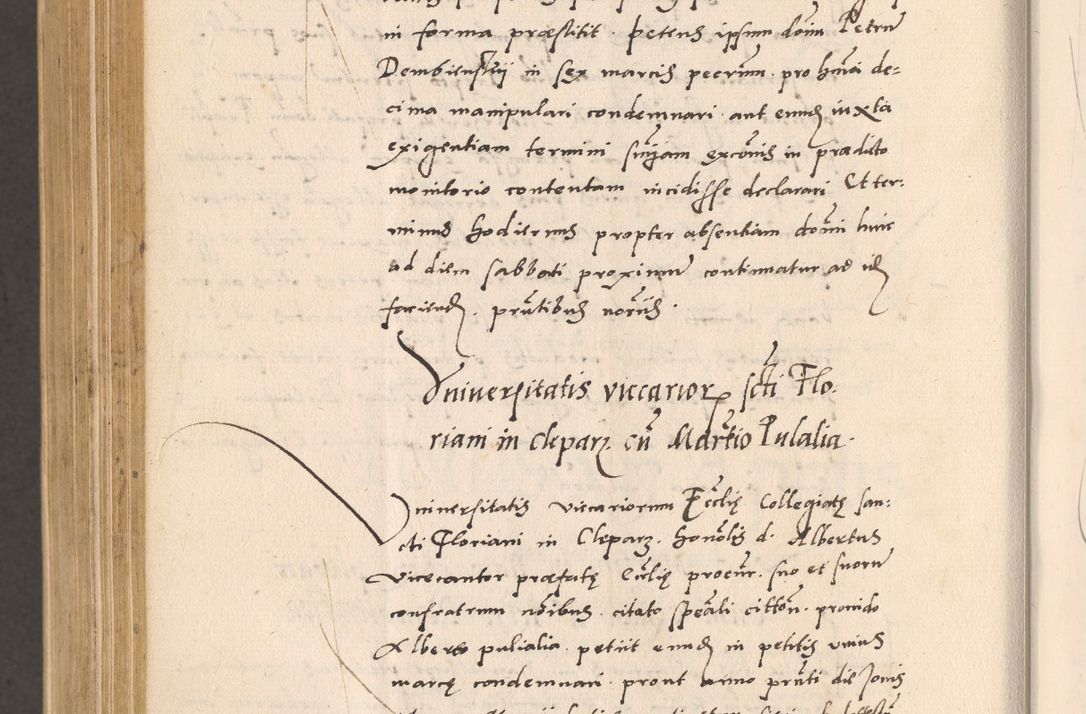 in forma præstitit. petens ipsum dom̄ Petrū
Dembienskij in sex marcis pecūm. pro hm̄oi de=
cima manipulari condemnari. aut eund̄ iuxta
exigentiam termini snīam excōnis in prædicto
monitorio contentam incidisse declarari Et ter:
minus hodiernus propter absentiam domī huic
ad diem sabbati proximū continuatur ad id
faciend̄. pn̄tibus nōrijs.
Vniuersitatis viccarior̄ scti Flo:
riani in Cleparz. cū Martio Pulalia.
Vniuersitatis viccariorum Eccłię Collegiatę san:
cti Floriani in Cleparz. honōlis d. Albertus
vicecantor præfatę Eccłię procur. suo et suorū
confratrum nōibus. citato speāli cittōn. prouido
Alberto pulialia. petijt eund̄ in petitis vnius
marcę condemnari. prout anno pn̄ti die Jouis